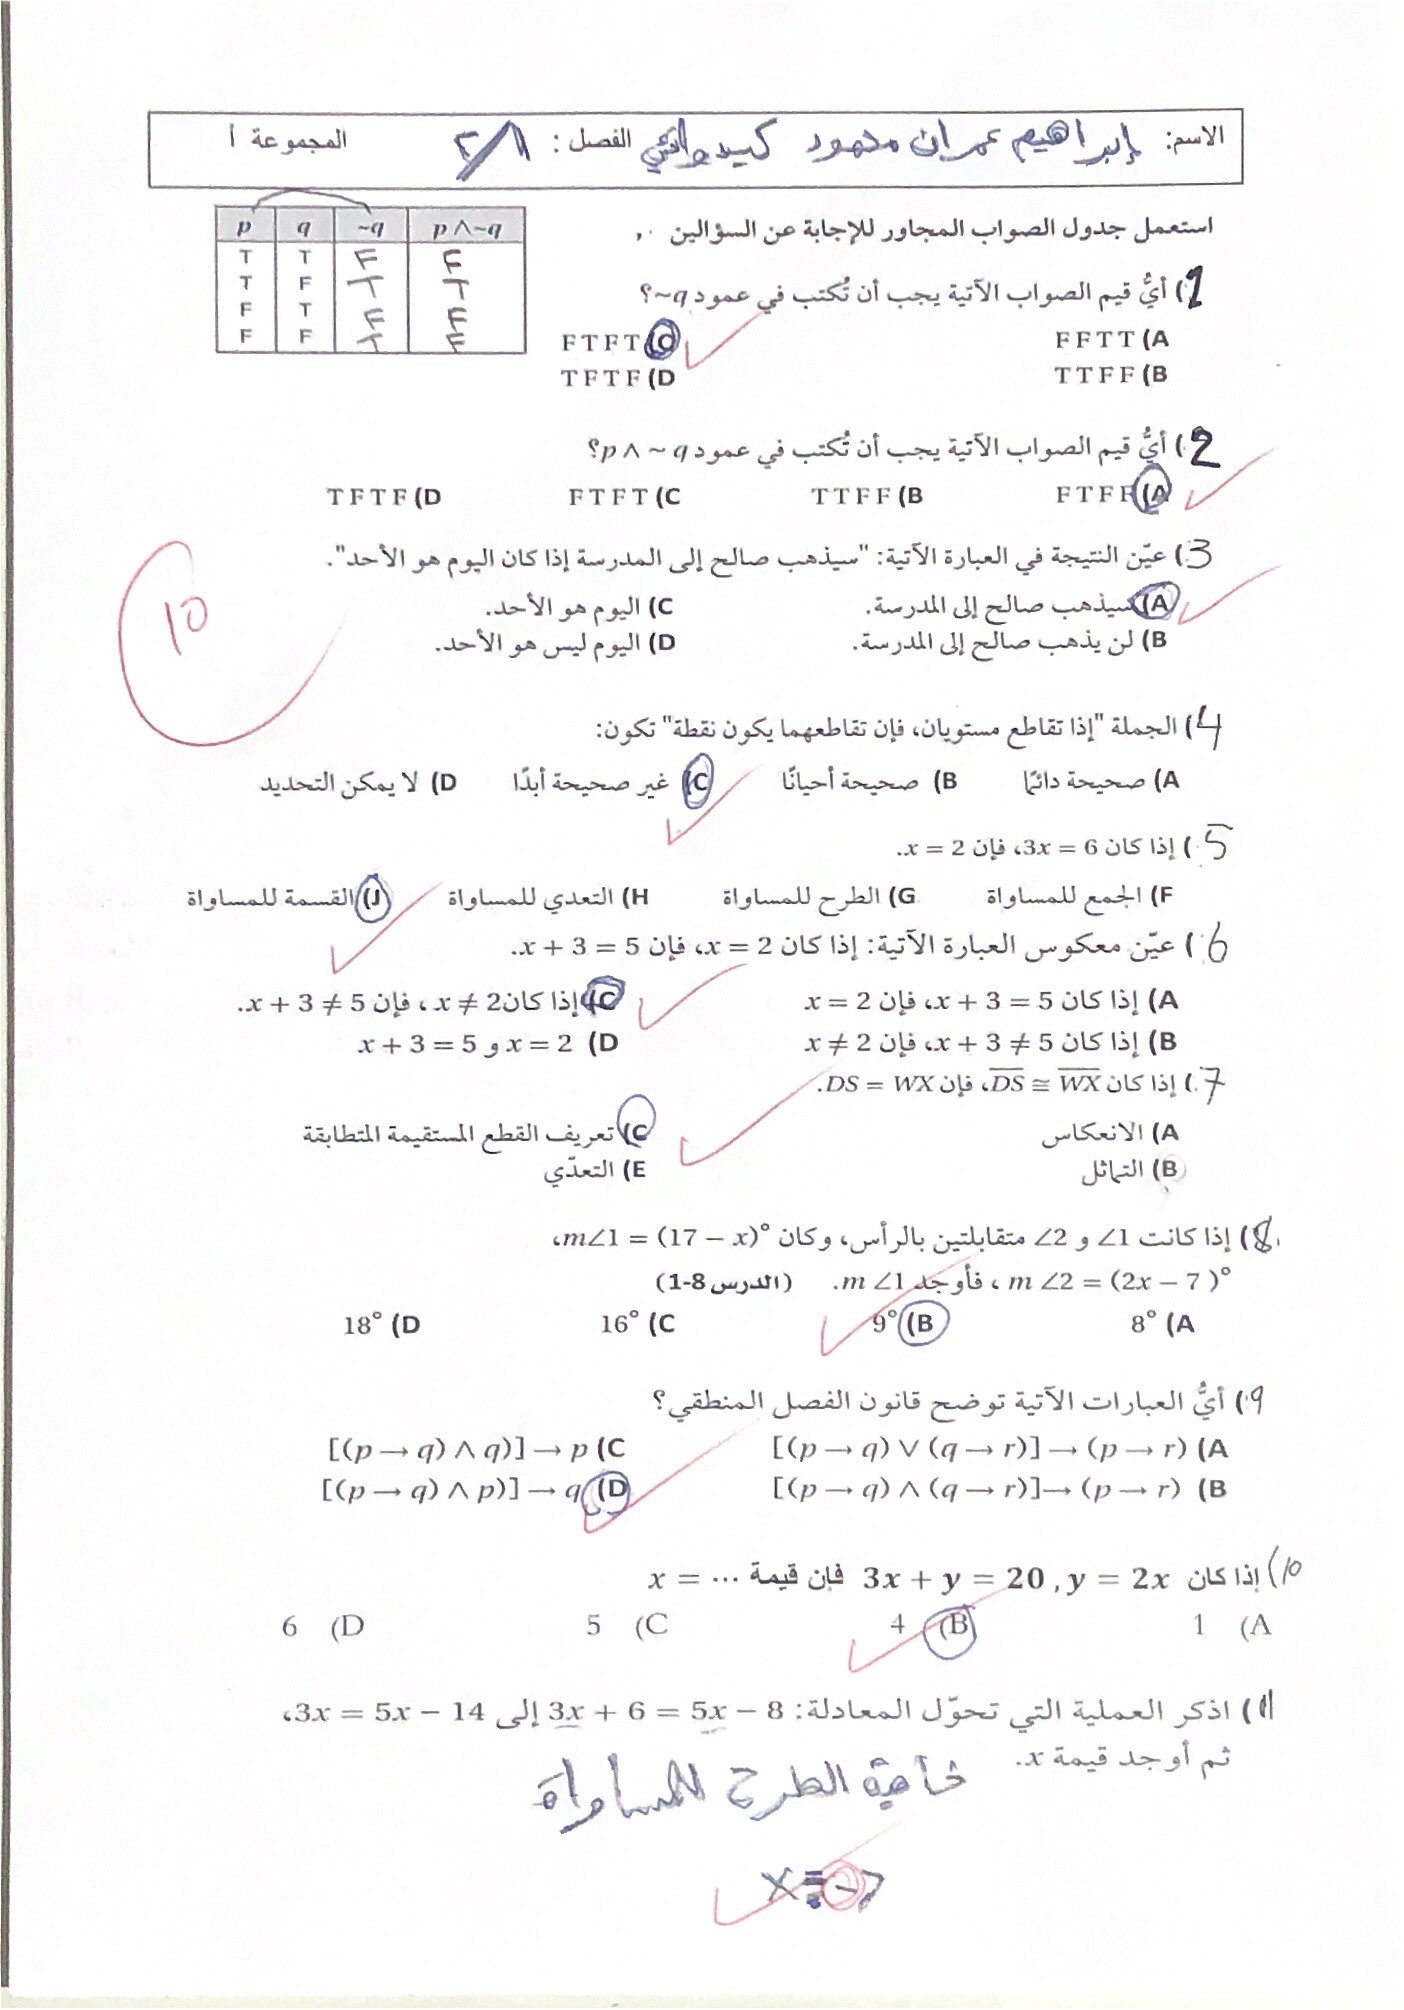 الاسم: إبراهيم عمران محمود كيدوائي الفصل: ٢/١ المجموعة أ
p q ~q p∧~q
T T F F
T F T T
F T F F
F F T F
استعمل جدول الصواب المجاور للإجابة عن السؤالين
1) أيُّ قيم الصواب الآتية يجب أن تُكتب في عمود ~q؟
A) F F T T C) F T F T
B) T T F F D) T F T F
2) أيُّ قيم الصواب الآتية يجب أن تُكتب في عمود p ∧ ~ q؟
A) F T F F B) T T F F C) F T F T D) T F T F
3) عيّن النتيجة في العبارة الآتية: "سيذهب صالح إلى المدرسة إذا كان اليوم هو الأحد".
A) سيذهب صالح إلى المدرسة. C) اليوم هو الأحد.
B) لن يذهب صالح إلى المدرسة. D) اليوم ليس هو الأحد.
10
4) الجملة "إذا تقاطع مستويان، فإن تقاطعهما يكون نقطة" تكون:
A) صحيحة دائمًا B) صحيحة أحيانًا C) غير صحيحة أبدًا D) لا يمكن التحديد
5) إذا كان 3x = 6، فإن x = 2.
F) الجمع للمساواة G) الطرح للمساواة H) التعدي للمساواة J) القسمة للمساواة
6) عيّن معكوس العبارة الآتية: إذا كان x = 2، فإن x + 3 = 5.
A) إذا كان x + 3 = 5، فإن x = 2 C) إذا كان x ≠ 2، فإن x + 3 ≠ 5.
B) إذا كان x + 3 ≠ 5، فإن x ≠ 2 D) x = 2 و x + 3 = 5
7) إذا كان D̅S̅ ≅ W̅X̅، فإن DS = WX.
A) الانعكاس C) تعريف القطع المستقيمة المتطابقة
B) التماثل E) التعدّي
8) إذا كانت ∠1 و ∠2 متقابلتين بالرأس، وكان m∠1 = (17 − x)°،
m ∠2 = (2x − 7 )° ، فأوجد m ∠1. (الدرس 8-1)
A) 8° B) 9° C) 16° D) 18°
9) أيُّ العبارات الآتية توضح قانون الفصل المنطقي؟
A) [(p → q) ∨ (q → r)] → (p → r) C) [(p → q) ∧ q)] → p
B) [(p → q) ∧ (q → r)]→ (p → r) D) [(p → q) ∧ p)] → q
10) إذا كان 3x + y = 20 , y = 2x فإن قيمة ... = x
A) 1 B) 4 C) 5 D) 6
11) اذكر العملية التي تحوّل المعادلة: 3x + 6 = 5x − 8 إلى 3x = 5x − 14،
ثم أوجد قيمة x.
خاصية الطرح للمساواة
x = -7